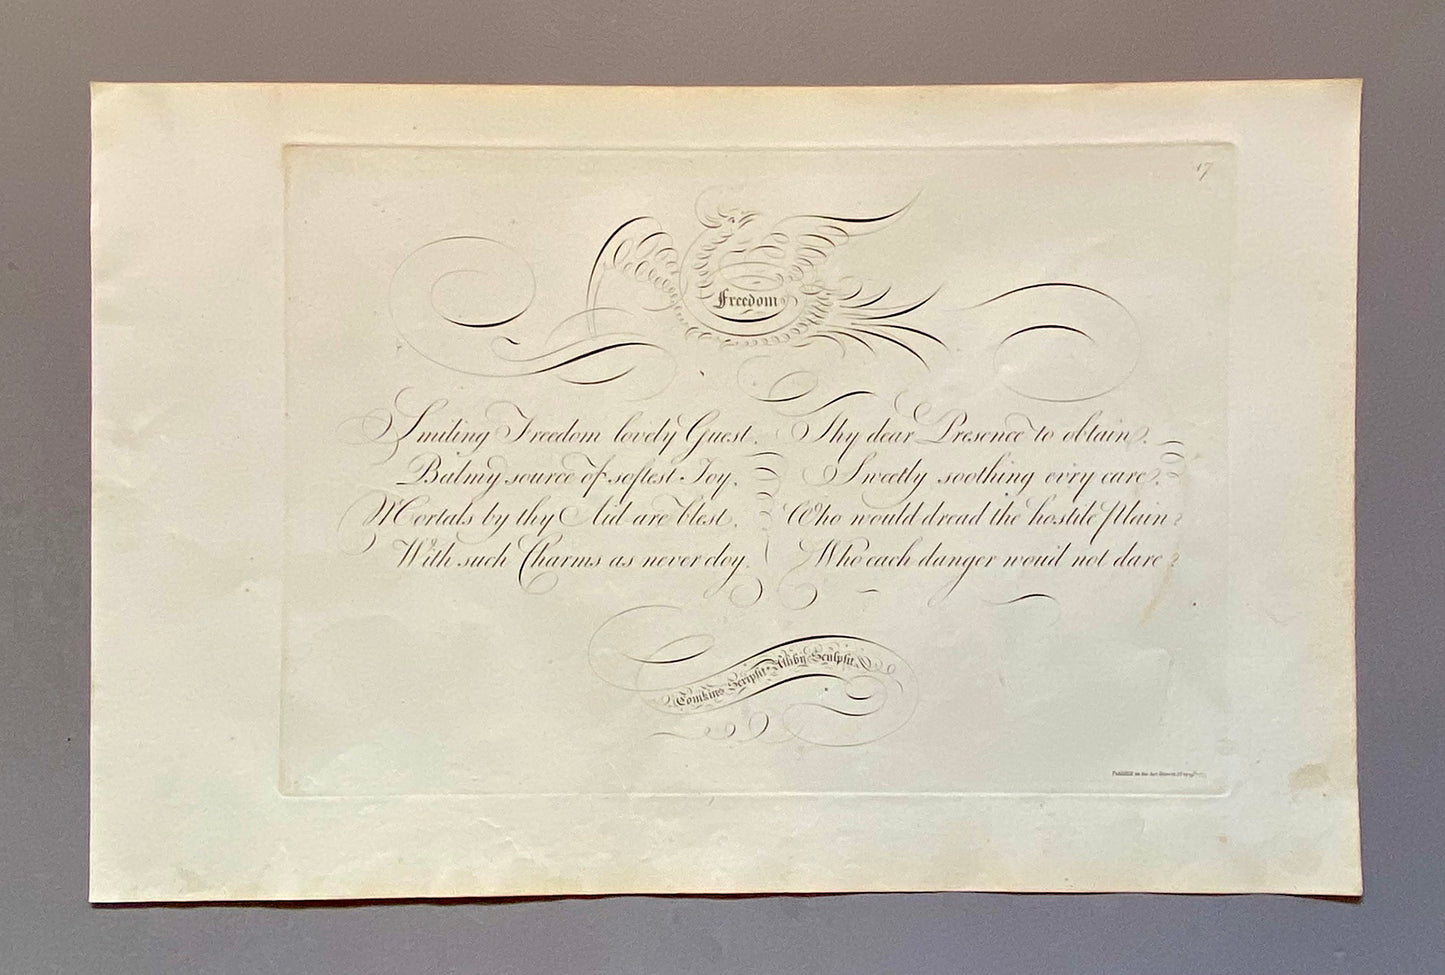 17
Freedom
Smiling Freedom lovely Guest,
Balmy source of softest Joy,
Mortals by thy Aid are blest,
With such Charms as never cloy.
Thy dear Presence to obtain,
Sweetly soothing ev'ry care,
Who would dread the hostile Plain?
Who each danger wou'd not dare?
Tomkins Scripsit. Ashby Sculpsit.
Publish'd as the Act directs